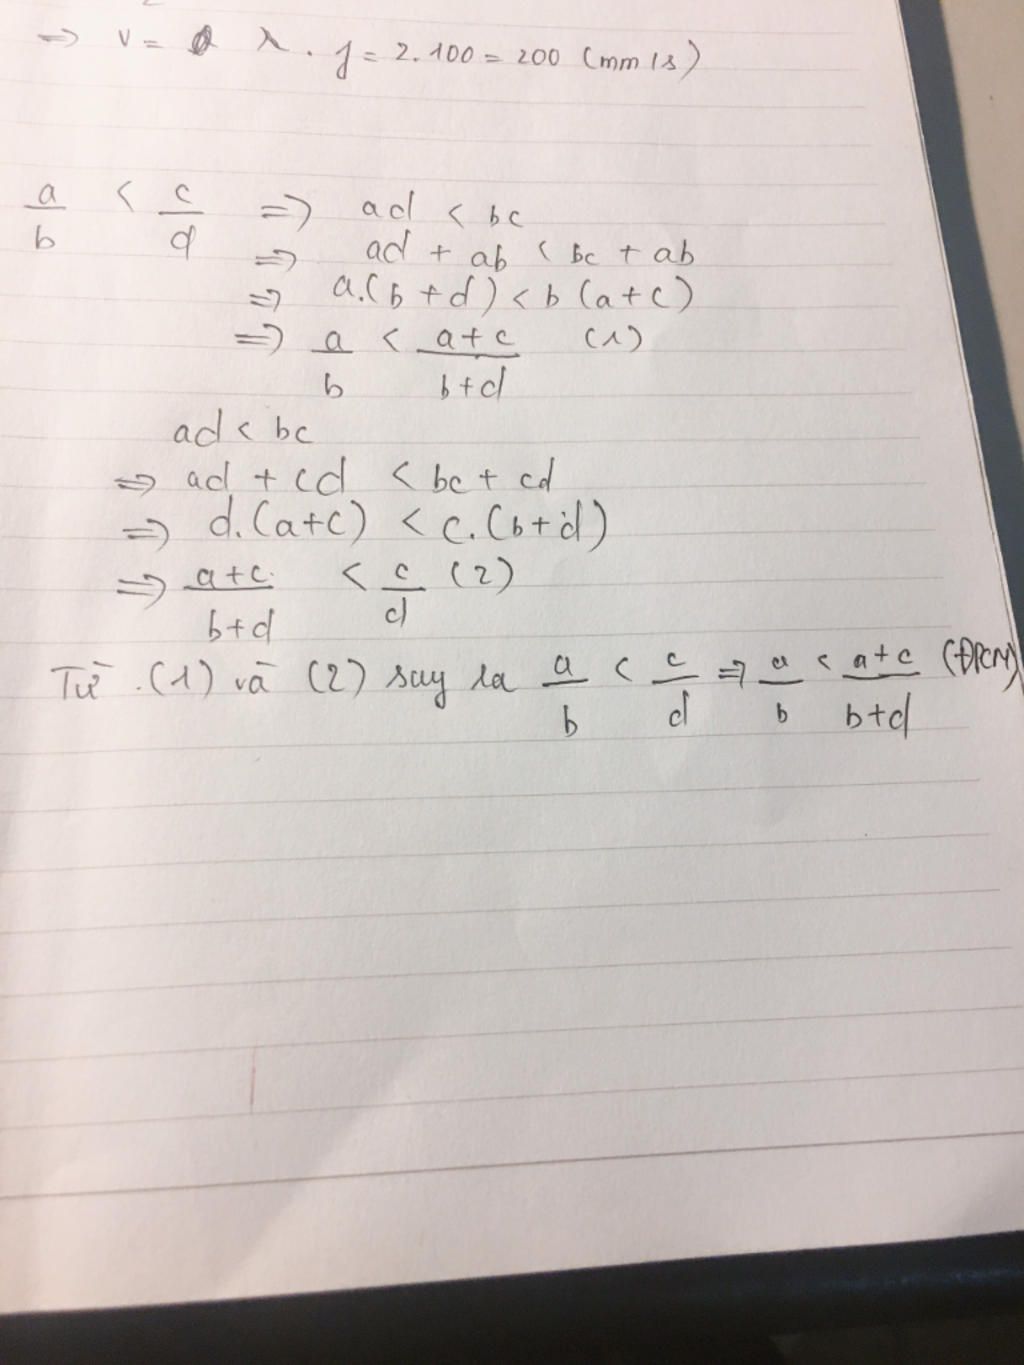 => v = λ . f = 2.100 = 200 (mm/s)
a/b < c/d => ad < bc
=> ad + ab < bc + ab
=> a.(b+d) < b(a+c)
=> a/b < a+c/b+d (1)
ad < bc
=> ad + cd < bc + cd
=> d.(a+c) < c.(b+d)
=> a+c/b+d < c/d (2)
Từ (1) và (2) suy ra a/b < c/d => a/b < a+c/b+d (ĐPCM)